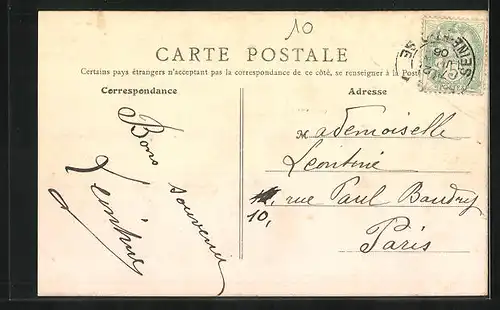 10
CARTE POSTALE
Certains pays étrangers n'acceptant pas la correspondance de ce côté, se renseigner à la Poste
Correspondance
Adresse
Bons souvenirs
Mademoiselle
Leontine
10, rue Paul Baudry
Paris